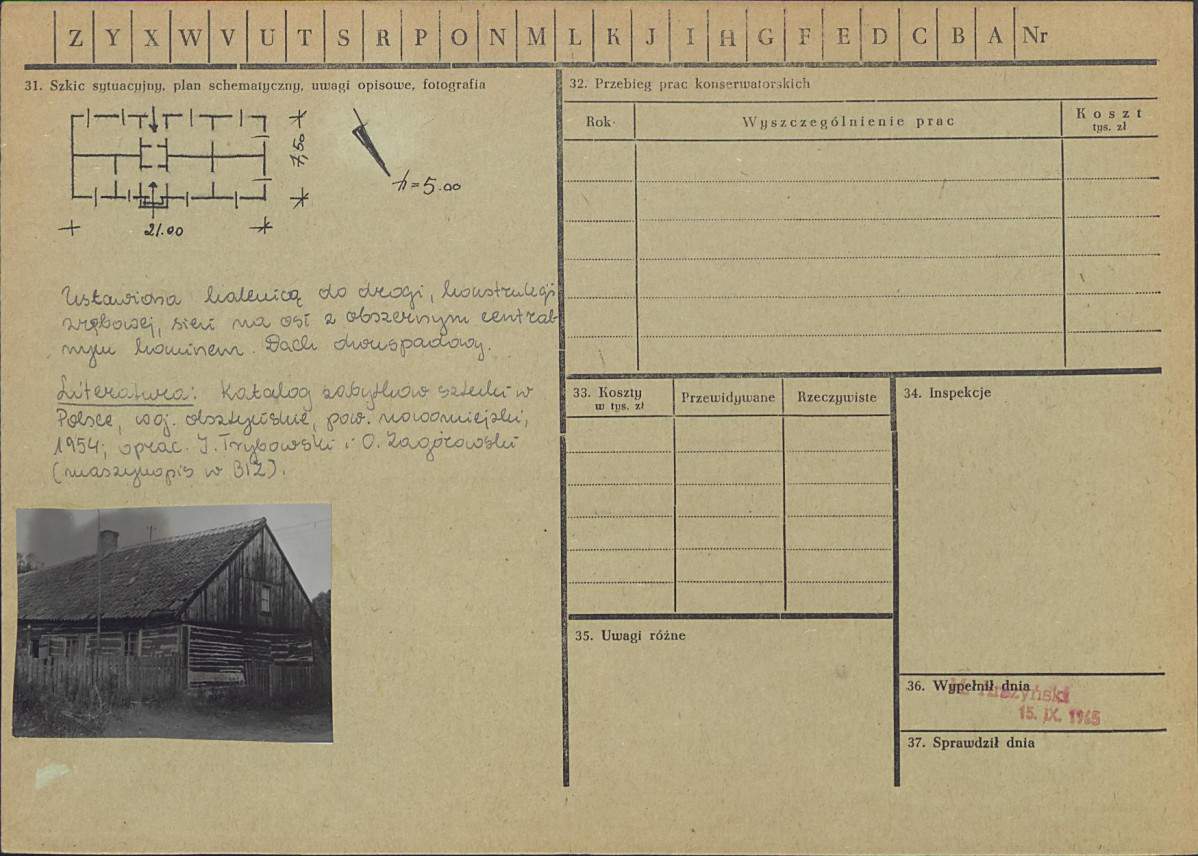 Z Y X W V U T S R P O N M L K J I H G F E D C B A Nr
31. Szkic sytuacyjny, plan schematyczny, uwagi opisowe, fotografia
7,50
h = 5.00
21.00
Ustawiona kalenicą do drogi, konstrukcji
zrębowej, sień na osi z obszernym central
nym kominem. Dach dwuspadowy.
Literatura: Katalog zabytków sztuki w
Polsce, woj. olsztyńskie, pow. nowomiejski,
1954; oprac. J. Trybowski i O. Zagórowski
(maszynopis w BIZ).
32. Przebieg prac konserwatorskich
Rok
Wyszczególnienie prac
Koszt
tys. zł
33. Koszty
w tys. zł
Przewidywane
Rzeczywiste
34. Inspekcje
35. Uwagi różne
36. Wypełnił dnia
15. IX. 1965
37. Sprawdził dnia